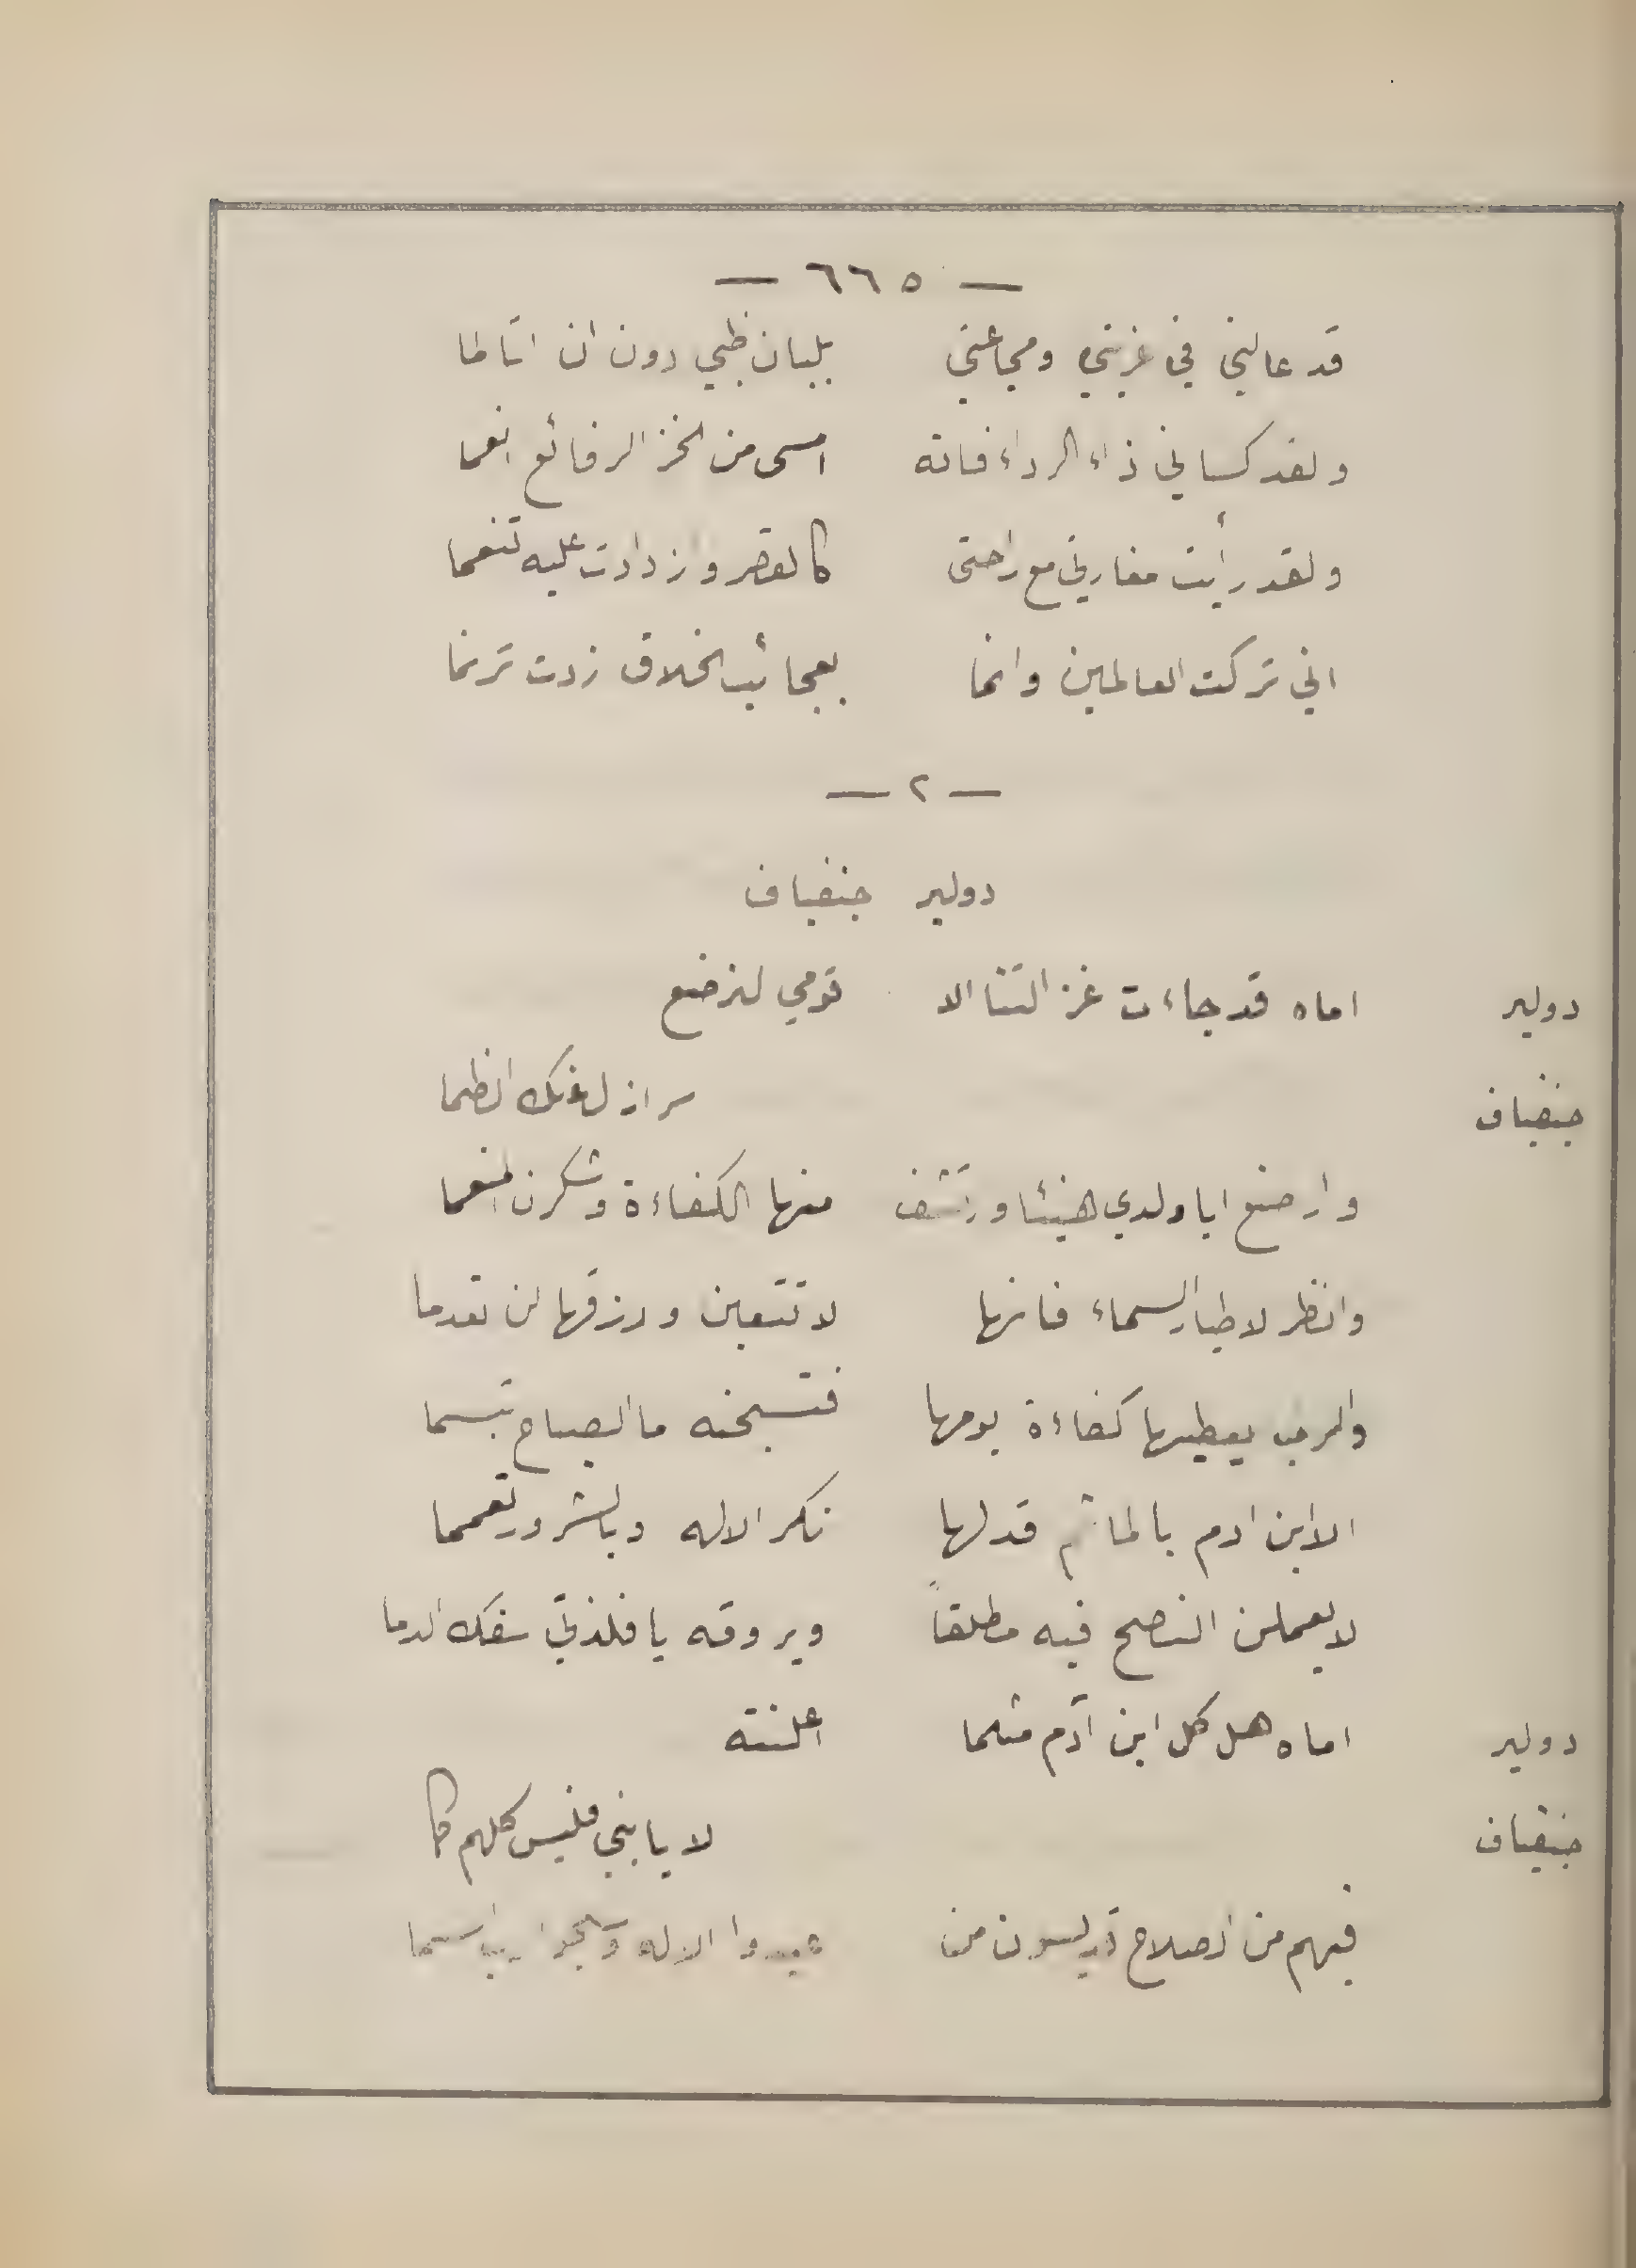 — ٦٦٥ —
قد عالني في غربتي ومجاعتي بلبان ظبي دون ان اتألما
ولقد كساني ذاء الرداء فانه امسى من الخز الرفائع انعما
ولقد رأيت مغارتي مع راحتى كالقصر وازدادت عليه تنعما
اني تركت العالمين وانما بعجائب الخلاق زدت ترنما
— ٢ —
دولير جنفياف
دولير اماه قد جاءت غزالتنا الا قومي لنرضع
جنفياف سر ازلغنك الظما
وارضع ايا ولدي هنيئا ورتشف منها الكفاءة وشكرن المنعما
وانظر لاطيار السماء فانها لا تتعبن ورزقها لن تعدما
والرب يعطيها كفاءة يومها فتسبحنه ما الصباح تبسما
الا ابن ادم بالماثم قد لها نكر الاله وبالشرور تعمما
لا يعملن النصح فيه مطلقاً ويروقه يا فلذتي سفك الدما
دولير اماه هل كل ابن آدم مثلما اعلنته
جنفياف لا يا بني فليس كلهم كما
فيهم من الصلاح من عبدوا الاله